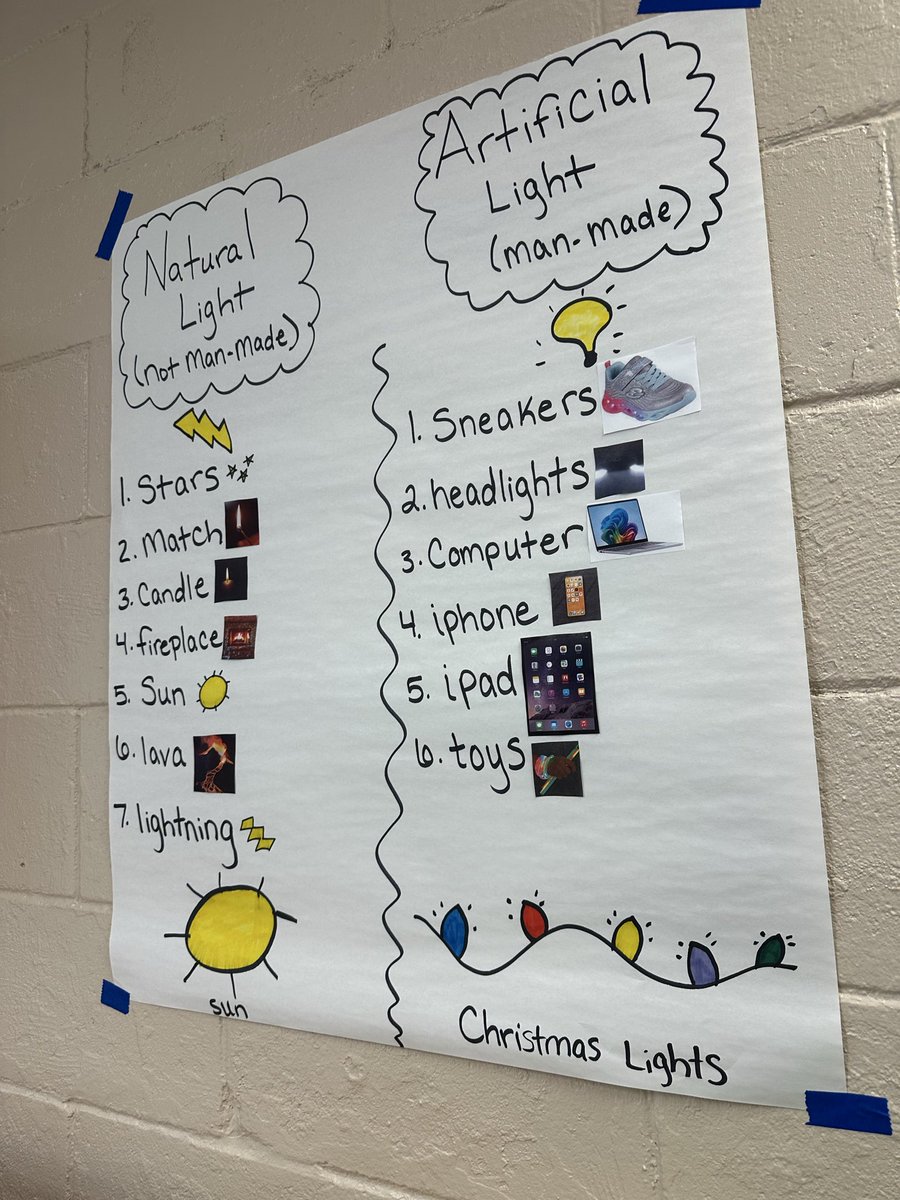 Natural
Light
(not Man-Made)
1. Stars
2. Match
3. Candle
4. fireplace
5. Sun
6. lava
7. lightning
sun
Artificial
Light
(man-made)
1. Sneakers
2. headlights
3. Computer
4. iphone
5. ipad
6. toys
Christmas Lights